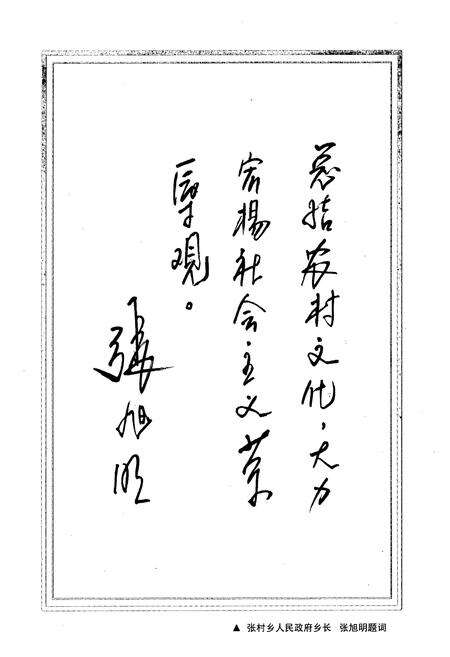 总结农村文化，大力
宏楊社会主义荣
辱观。
張旭明
▲ 张村乡人民政府乡长 张旭明题词